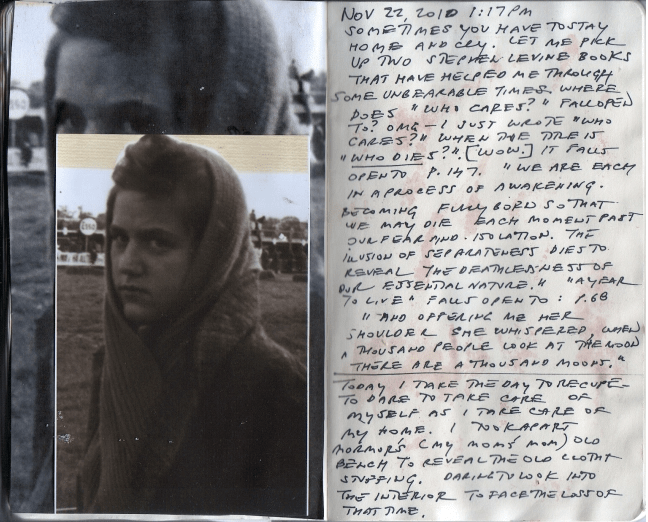 NOV 22, 2010 1:17PM
SOMETIMES YOU HAVE TO STAY
HOME AND CRY. LET ME PICK
UP TWO STEPHEN LEVINE BOOKS
THAT HAVE HELPED ME THROUGH
SOME UNBEARABLE TIMES. WHERE
DOES "WHO CARES?" FALL OPEN
TO? OMG – I JUST WROTE "WHO
CARES?" WHEN THE TITLE IS
"WHO DIES?". [WOW.] IT FALLS
OPEN TO P. 147. "WE ARE EACH
IN A PROCESS OF AWAKENING.
BECOMING FULLY BORN SO THAT
WE MAY DIE EACH MOMENT PAST
OUR FEAR AND ISOLATION. THE
ILLUSION OF SEPARATENESS DIES TO
REVEAL THE DEATHLESSNESS OF
OUR ESSENTIAL NATURE." "A YEAR
TO LIVE" FALLS OPEN TO: P.68
"AND OFFERING ME HER
SHOULDER SHE WHISPERED, WHEN
A THOUSAND PEOPLE LOOK AT THE MOON
THERE ARE A THOUSAND MOONS."
TODAY I TAKE THE DAY TO RECUPE-
TO DARE TO TAKE CARE OF
MYSELF AS I TAKE CARE OF
MY HOME. I TOOK APART
MORMOR'S (MY MOM'S MOM) OLD
BENCH TO REVEAL THE OLD CLOTH
STUFFING. DARING TO LOOK INTO
THE INTERIOR TO FACE THE LOSS OF
THAT TIME.